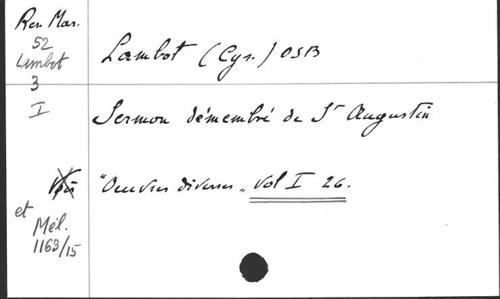 Rev. Mar.
52
Lambot
3
I
Lambot (Cyr.) OSB
Sermon démembré de St Augustin
Voir "Oeuvres diverses" vol I 26.
et
Mél.
1163/15